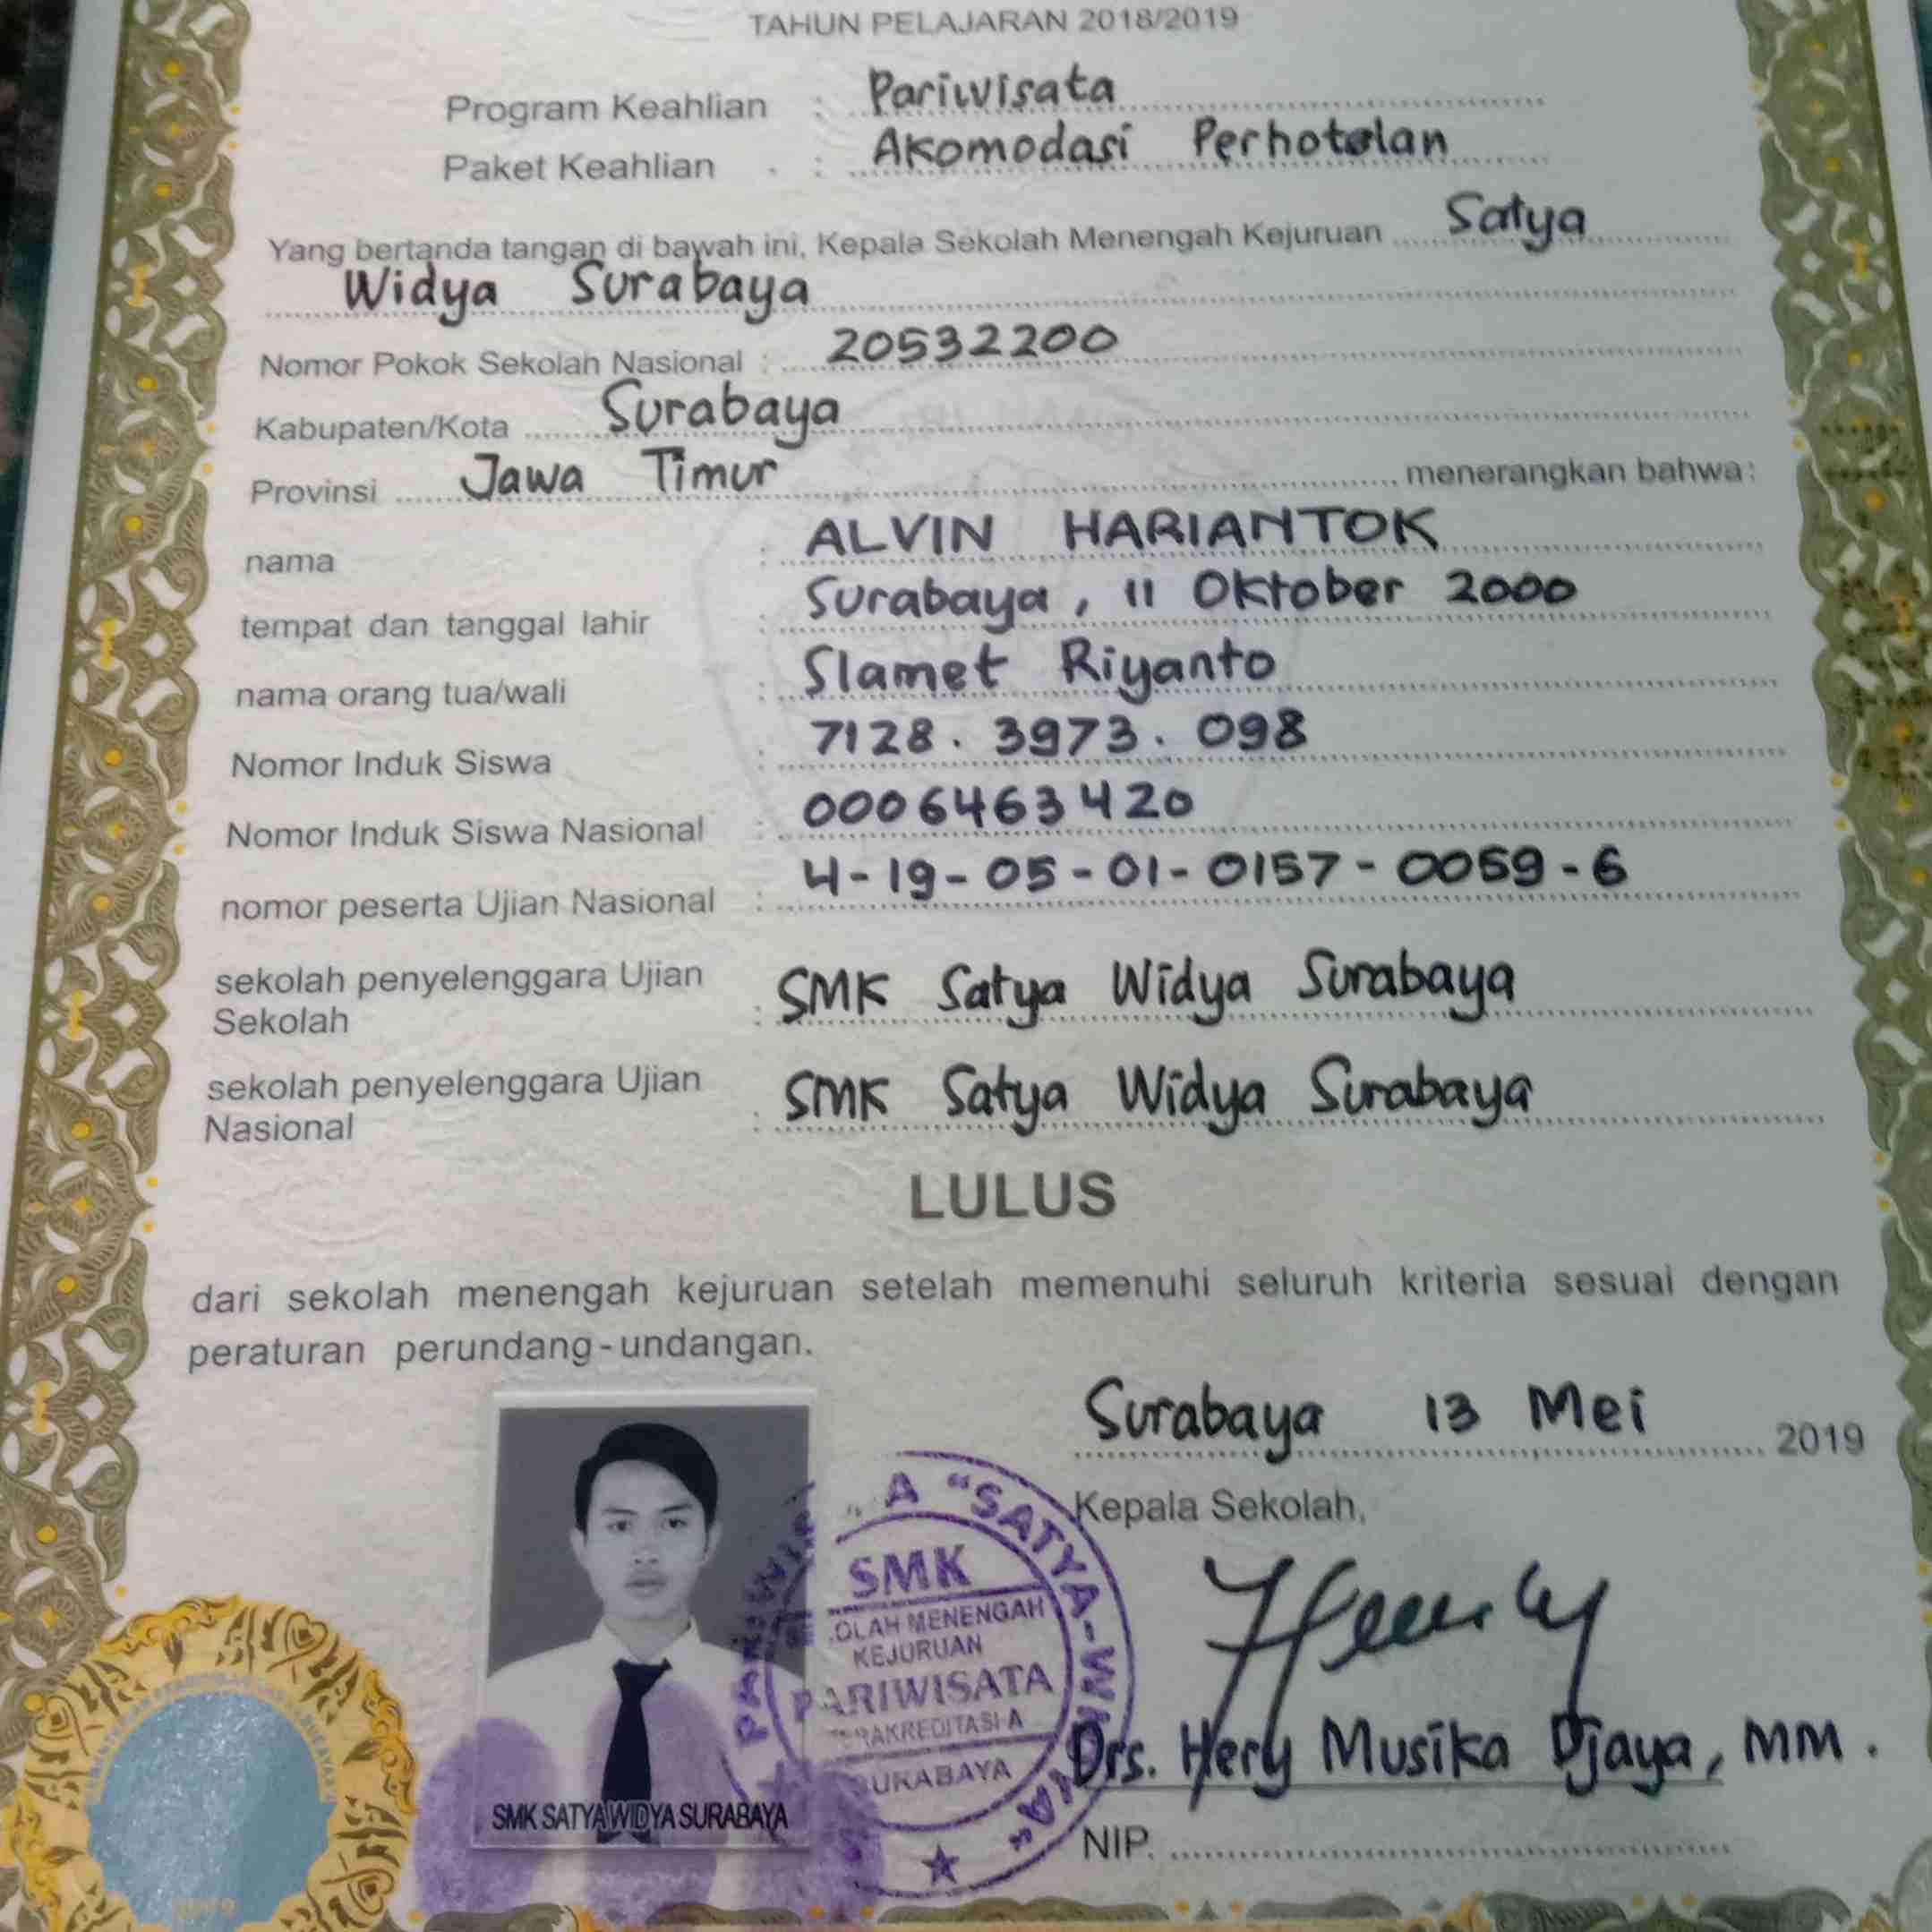 TAHUN PELAJARAN 2018/2019
Program Keahlian : Pariwisata
Paket Keahlian : Akomodasi Perhotelan
Yang bertanda tangan di bawah ini, Kepala Sekolah Menengah Kejuruan Satya
Widya Surabaya
Nomor Pokok Sekolah Nasional : 20532200
Kabupaten/Kota Surabaya
Provinsi Jawa Timur menerangkan bahwa:
nama : ALVIN HARIANTOK
tempat dan tanggal lahir : Surabaya, 11 Oktober 2000
nama orang tua/wali : Slamet Riyanto
Nomor Induk Siswa : 7128. 3973. 098
Nomor Induk Siswa Nasional : 0006463420
nomor peserta Ujian Nasional : 4-19-05-01-0157-0059-6
sekolah penyelenggara Ujian
Sekolah : SMK Satya Widya Surabaya
sekolah penyelenggara Ujian
Nasional : SMK Satya Widya Surabaya
LULUS
dari sekolah menengah kejuruan setelah memenuhi seluruh kriteria sesuai dengan
peraturan perundang-undangan.
Surabaya 13 Mei 2019
Kepala Sekolah,
A "SATYA-WIDYA"
SMK
OLAH MENENGAH
KEJURUAN
PARIWISATA
TERAKREDITASI-A
SURABAYA
Drs. Hery Musika Djaya, MM.
SMK SATYA WIDYA SURABAYA
NIP.
2019